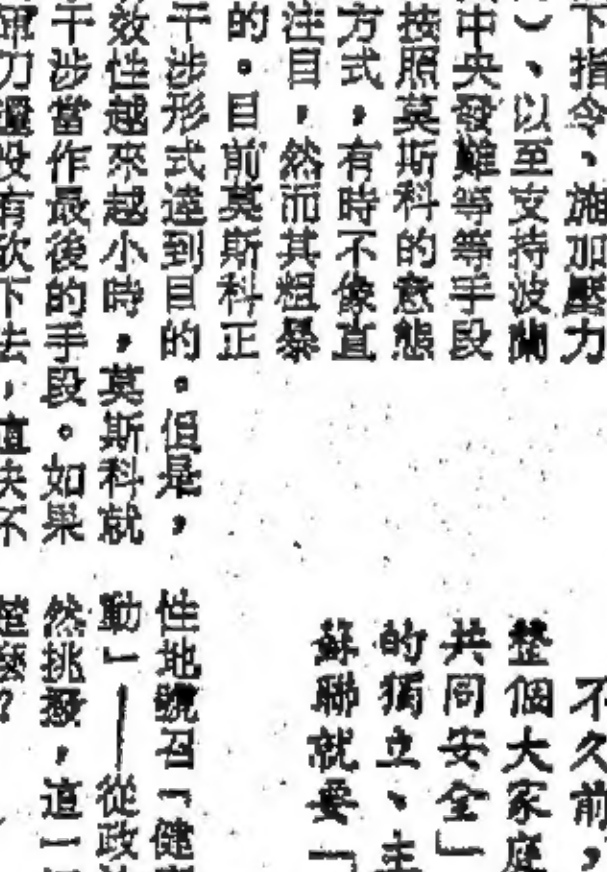 下指令、施加壓力
）、以至支持波蘭
中央發難等等手段
按照莫斯科的意態
方式，有時不像直
注目，然而其粗暴
的。目前莫斯科正
干涉形式達到目的。但是，
效性越來越小時，莫斯科就
干涉當作最後的手段。如果
刀還沒有砍下去，直決不
不久前，
整個大家庭
共同安全」
的獨立、主
蘇聯就要「
性地號召「健
動」——從政
然挑撥，這一
楚麼？